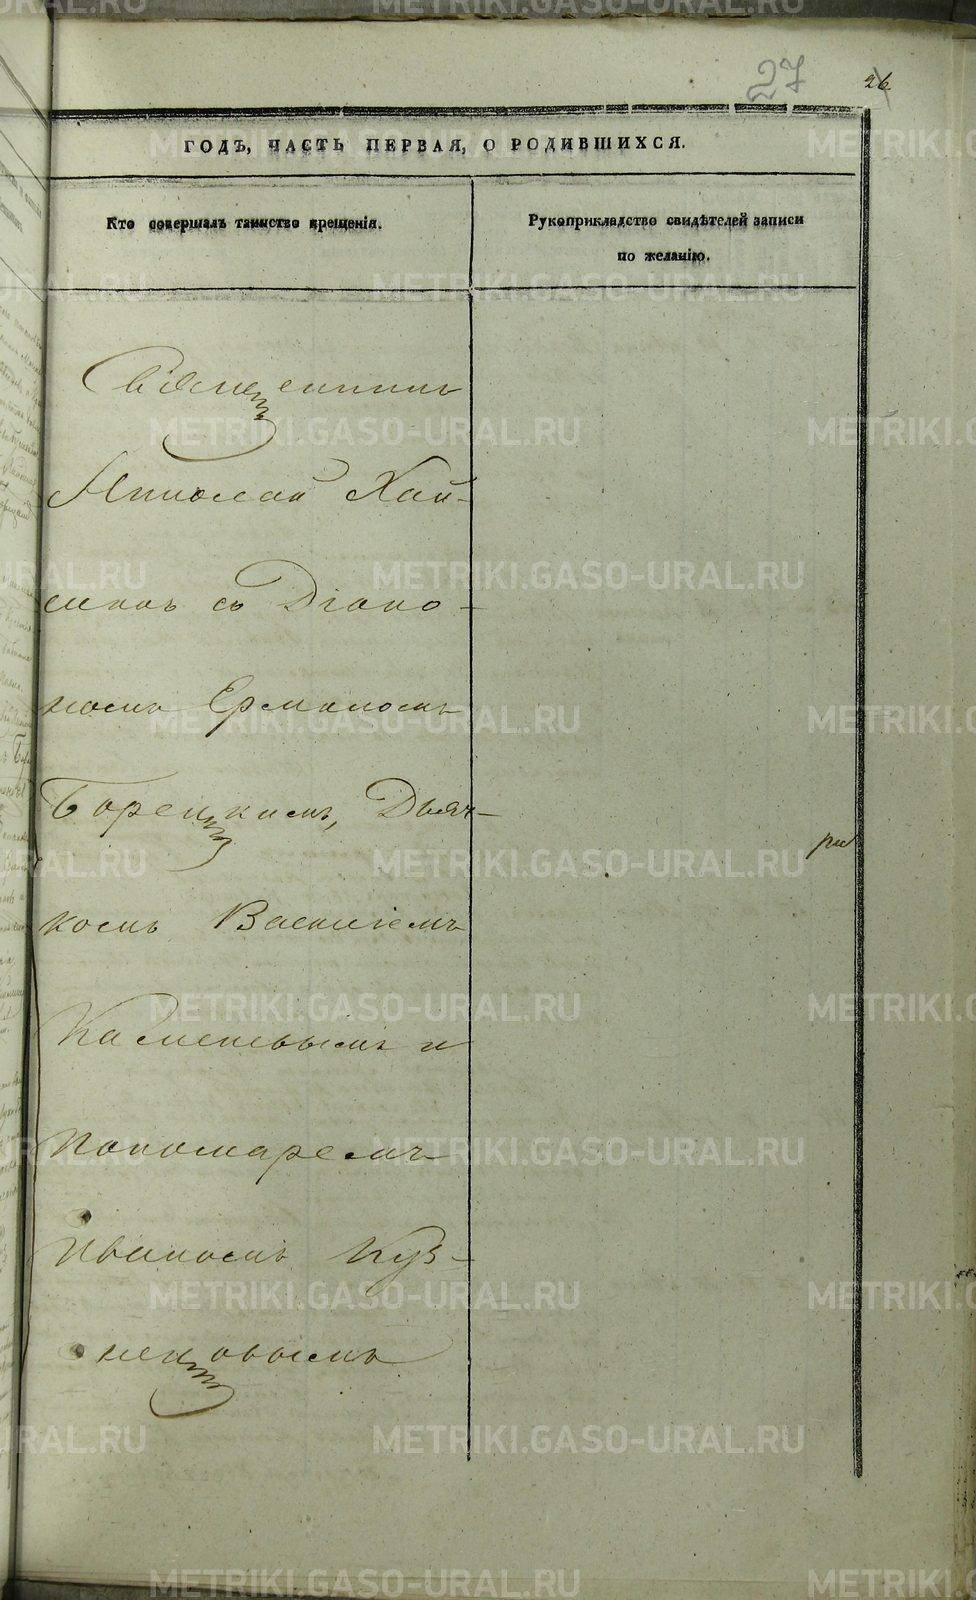 27
26
ГОДЪ, ЧАСТЬ ПЕРВАЯ, О РОДИВШИХСЯ.
Кто совершалъ таинство крещенія.
Рукоприкладство свидѣтелей записи
по желанію.
Священникъ
Николай Хай-
никъ съ Діако-
номъ Ермиломъ
Борецкимъ, Дьяч-
комъ Василіемъ
и
Пономаремъ
Иваномъ Куз-
нецовымъ
METRIKI.GASO-URAL.RU